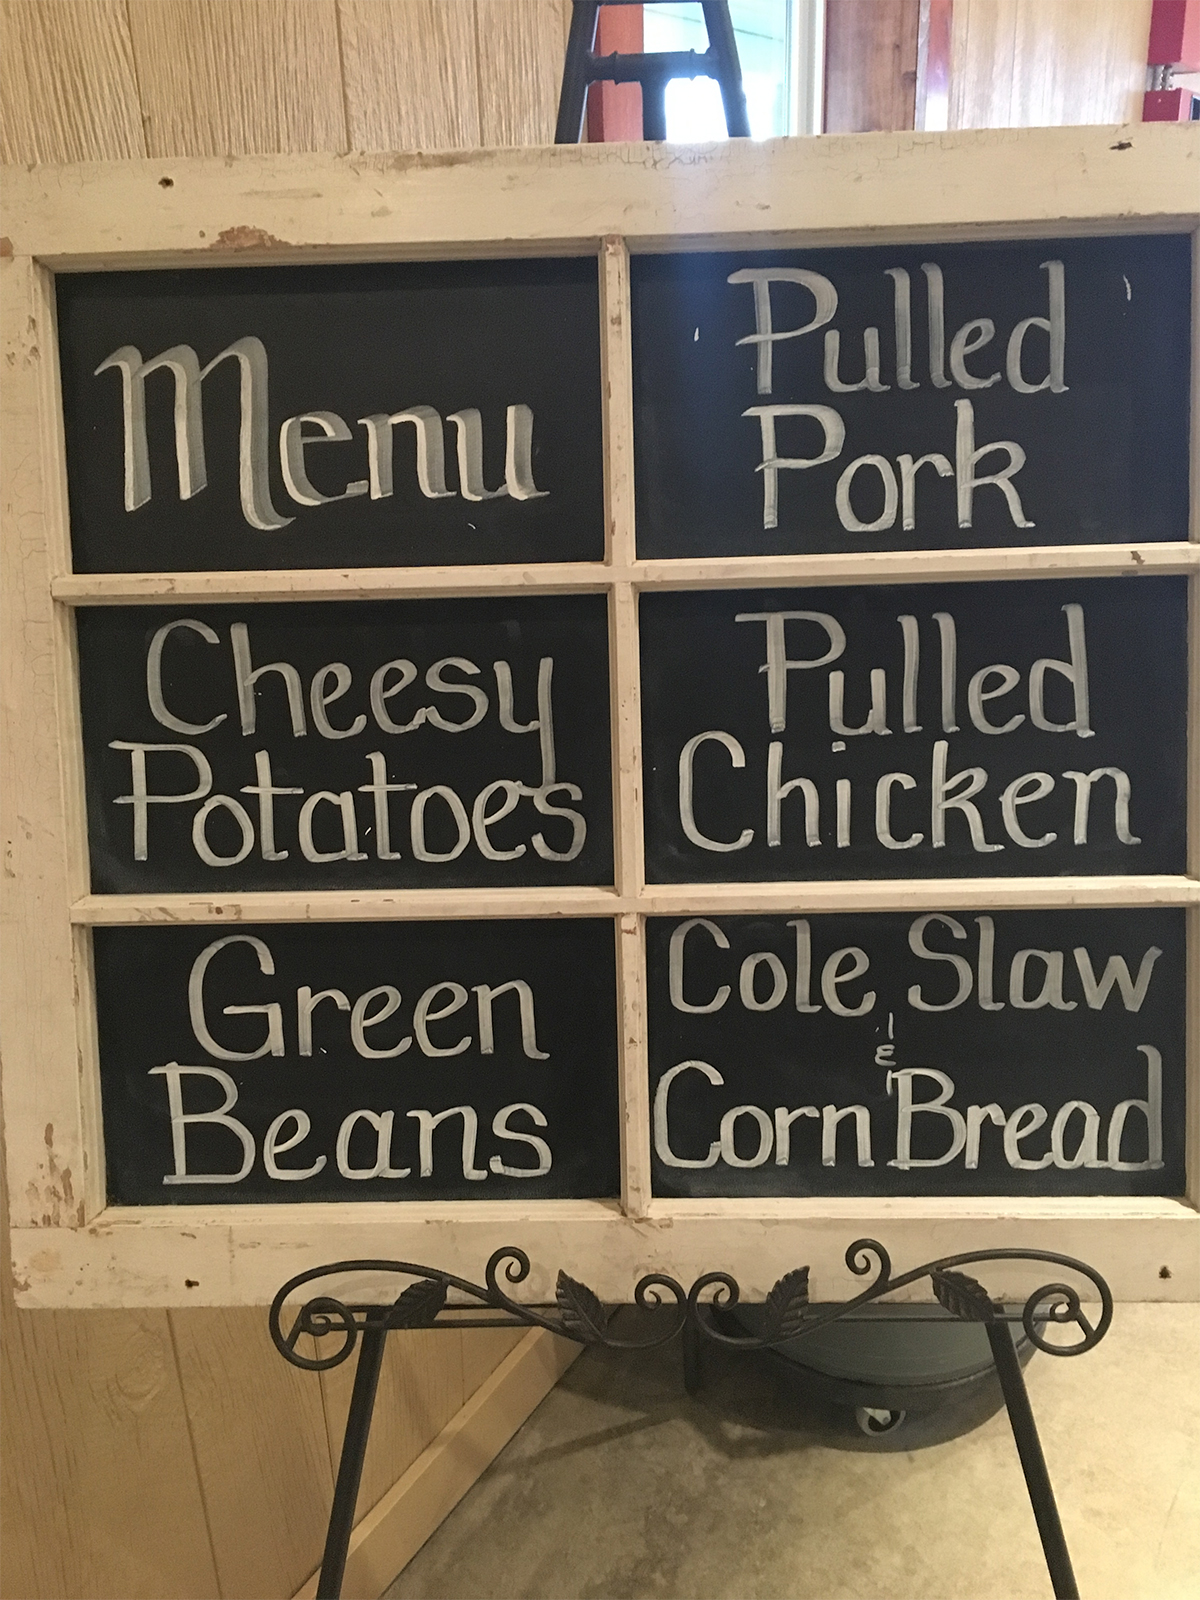 Menu
Pulled
Pork
Cheesy
Potatoes
Pulled
Chicken
Green
Beans
Cole Slaw
&
Corn Bread